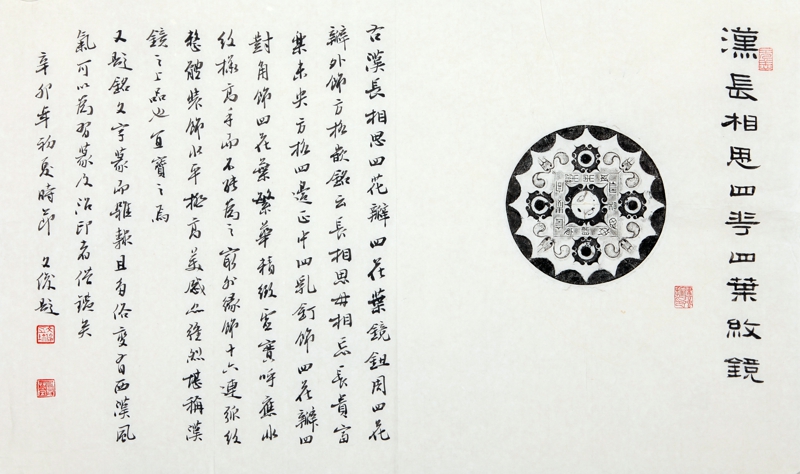 漢長相思四花四葉紋鏡
古漢長相思四花瓣四花葉鏡鈕周四花
瓣外飾方格嵌銘云長相思毋相忘長貴富
樂未央方格四邊正中四乳釘飾四花瓣四
對角飾四花葉繁華積緻虛實呼應非
紋樣高手而不能為之最外緣飾十六連弧紋
整體裝飾水平極高美感亦強烈堪稱漢
鏡之上品也宜寶之焉
又題銘文字篆而雖隸且有俗變有西漢風
氣可以為習篆及治印者借鏡矣
辛卯年初夏時節 文俊題